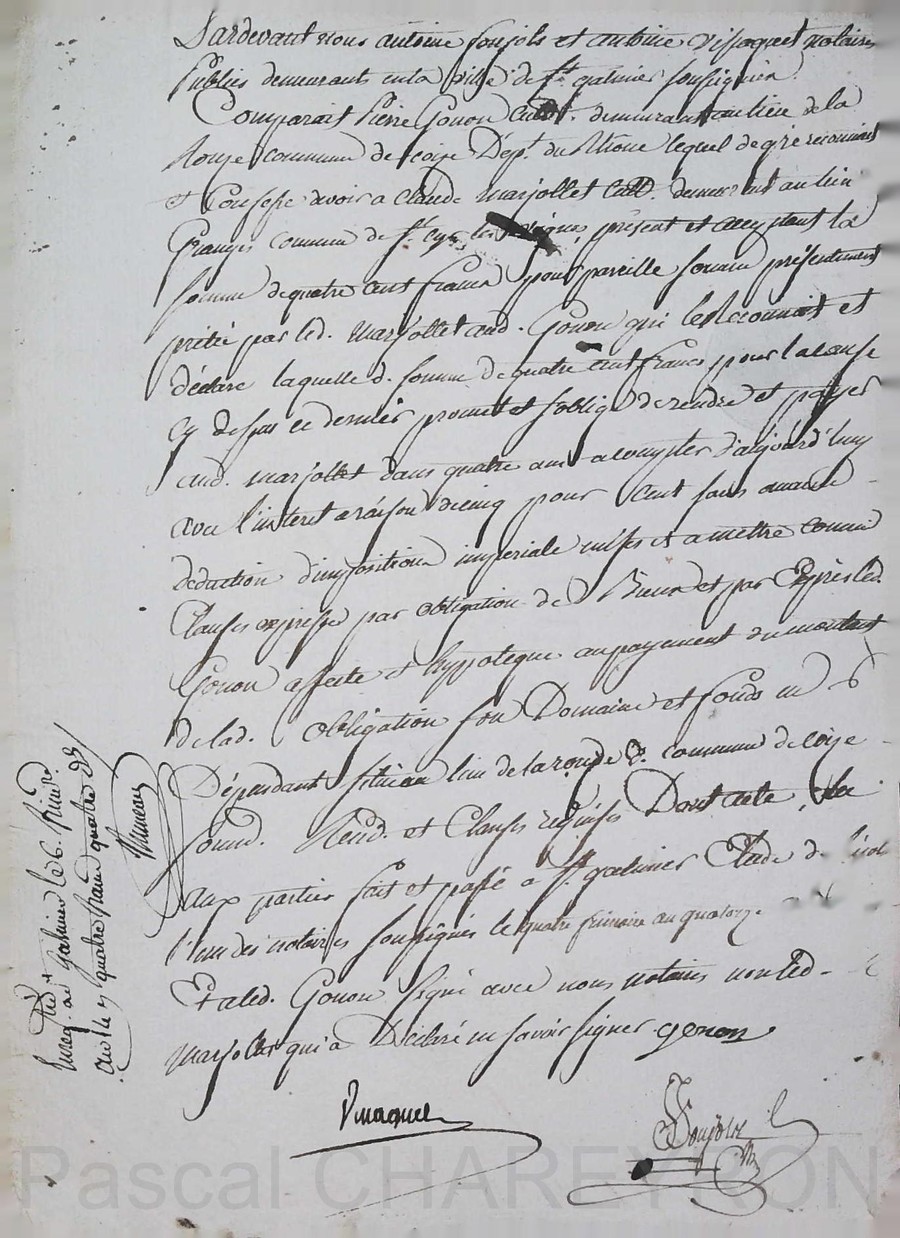 Pardevant nous antoine Poujols et antoine Vissaguet notaires
Publics demeurants en la ville de St galmier soussignés
Comparait Pierre Gonon Cult. demeurant au lieu de la
Ronze commune de coize Dépt. du Rhone lequel de gré reconnait
et Confesse devoir a Claude Marjollet Cult. demeurant au lieu
Granges commune de St cyr les vignes, présent et acceptant la
somme de quatre cent francs pour pareille somme présentement
prêtée par led. Marjollet aud. Gonon qui le Reconnait et
déclare laquelle d. somme de quatre cent francs pour la cause
Cy dessus ce dernier promet et s'oblige de rendre et payer
aud. marjollet dans quatre ans a compter d'aujourd'huy
avec l'interet a raison de cinq pour Cent sans aucune
deduction d'impositions imperiale mises et a mettre comme
Clause expresse par obligation de Biens et par Exprès led.
Gonon affecte et hyppoteque au payement du montant
de lad. obligation son Domaine et fonds en
Dépendant situé au lieu de la ronze d. commune de coize
soumd. Rend. et Clauses requises Dont acte
aux parties fait et passé a St galmier Etude de
l'un des notaires soussignés le quatre frimaire an quatorze
Et aled. Gonon signé avec nous notaires non led.
Marjollet qui a Déclaré ne savoir signer. gonon
Vissaguet
Poujols
Enreg. a St Galmier le 6. frim.
an 14 quatre francs quatre